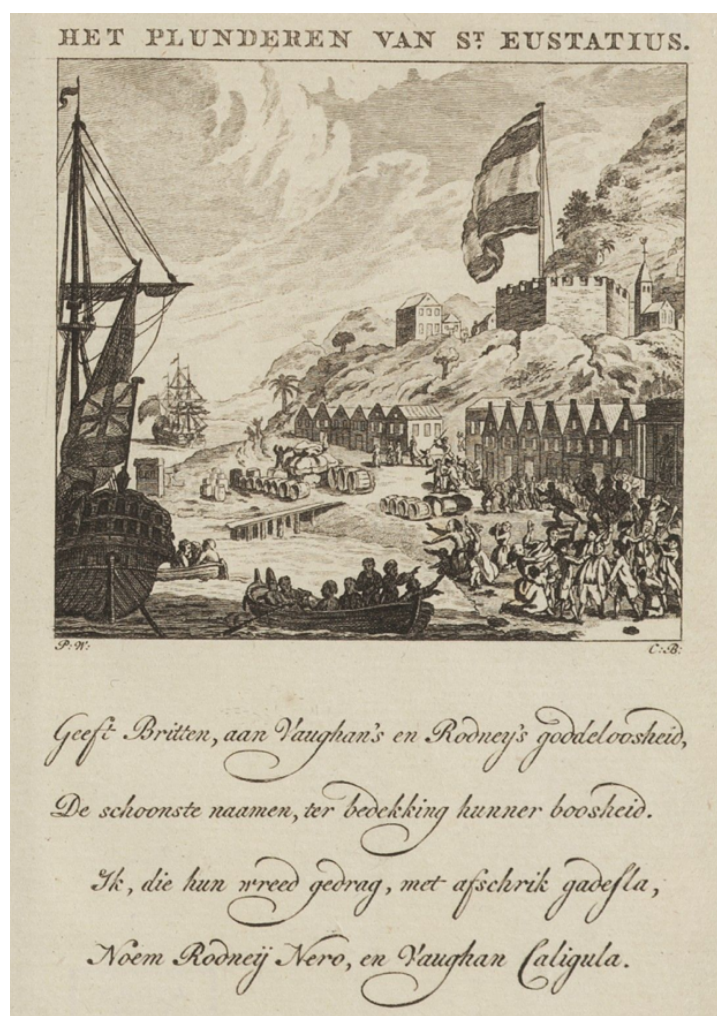 HET PLUNDEREN VAN ST. EUSTATIUS.
P: W: C: B:
Geeft Britten, aan Vaughan's en Rodney's goddeloosheid,
De schoonste naamen, ter bedekking hunner boosheid.
Ik, die hun wreed gedrag, met afschrik gadesla,
Noem Rodneÿ Nero, en Vaughan Caligula.